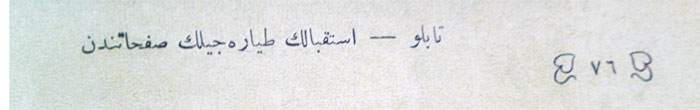 تابلو — استقبالك طياره جيلك صفحاتندن
٧٦